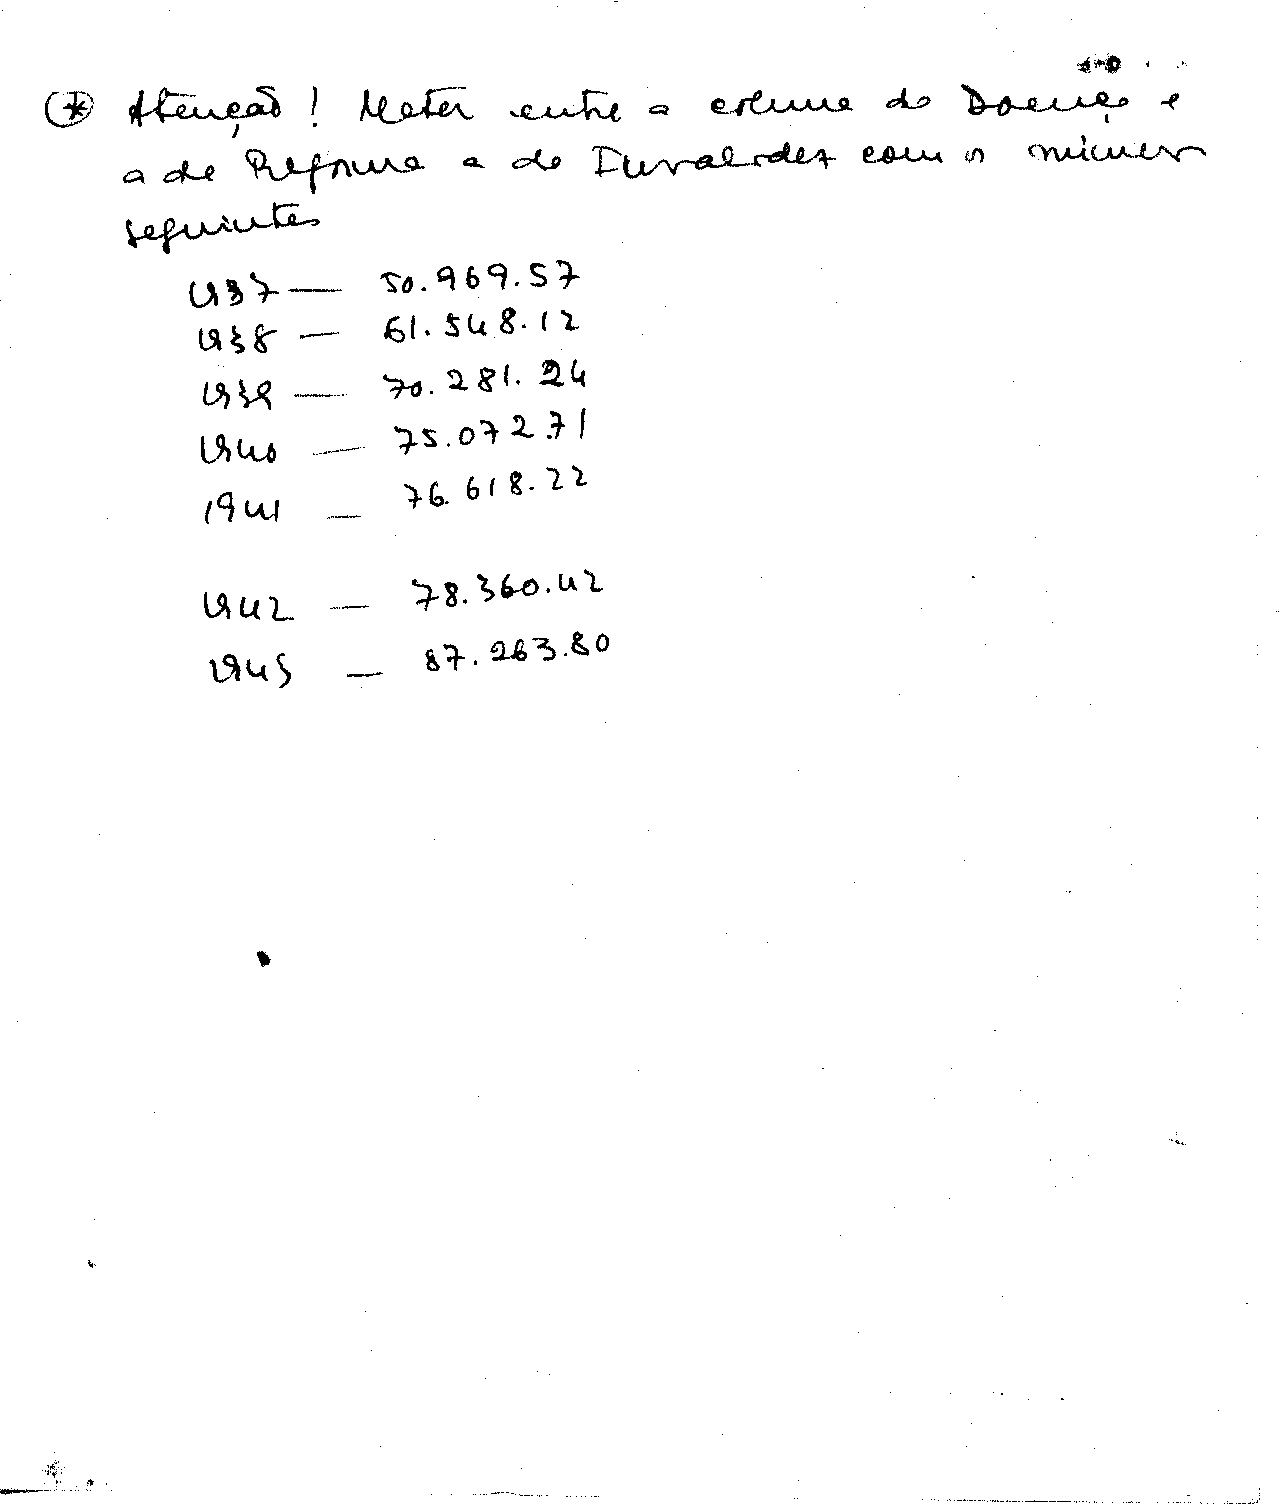 (*) Atenção! Meter entre a coluna da Doença e
a de Reforma a de Invalidez com os números
seguintes
1937 — 50.969.57
1938 — 61.548.12
1939 — 70.281.24
1940 — 75.072.71
1941 — 76.618.22
1942 — 78.360.42
1943 — 87.263.80